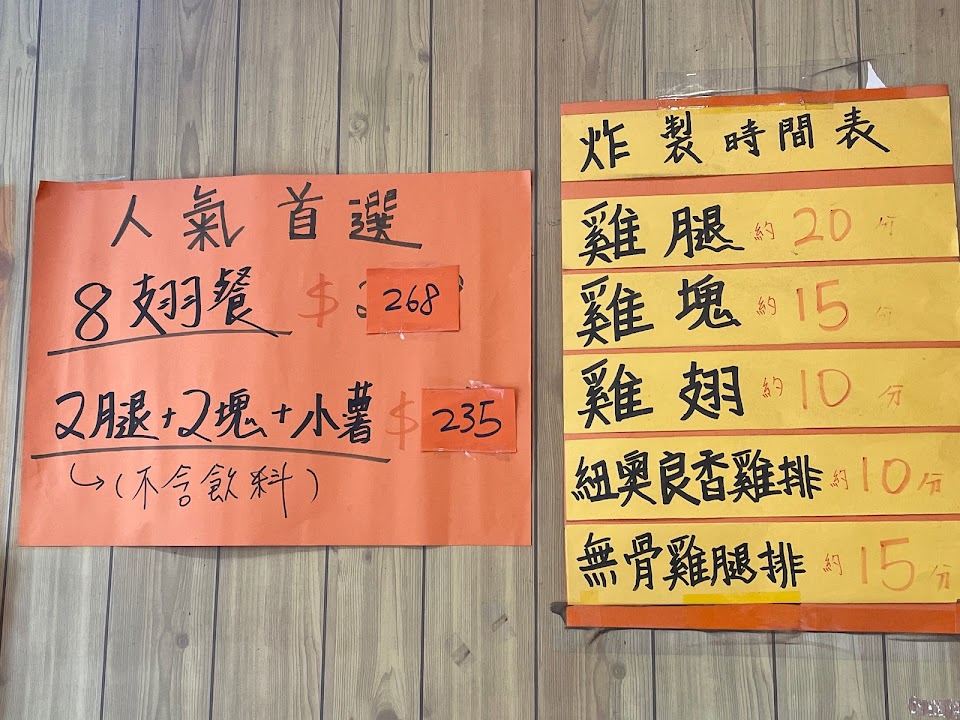 人氣首選
8翅餐 $268
2腿+2塊+小薯 $235
(不含飲料)
炸製時間表
雞腿 約20分
雞塊 約15分
雞翅 約10分
紐奧良香雞排 約10分
無骨雞腿排 約15分